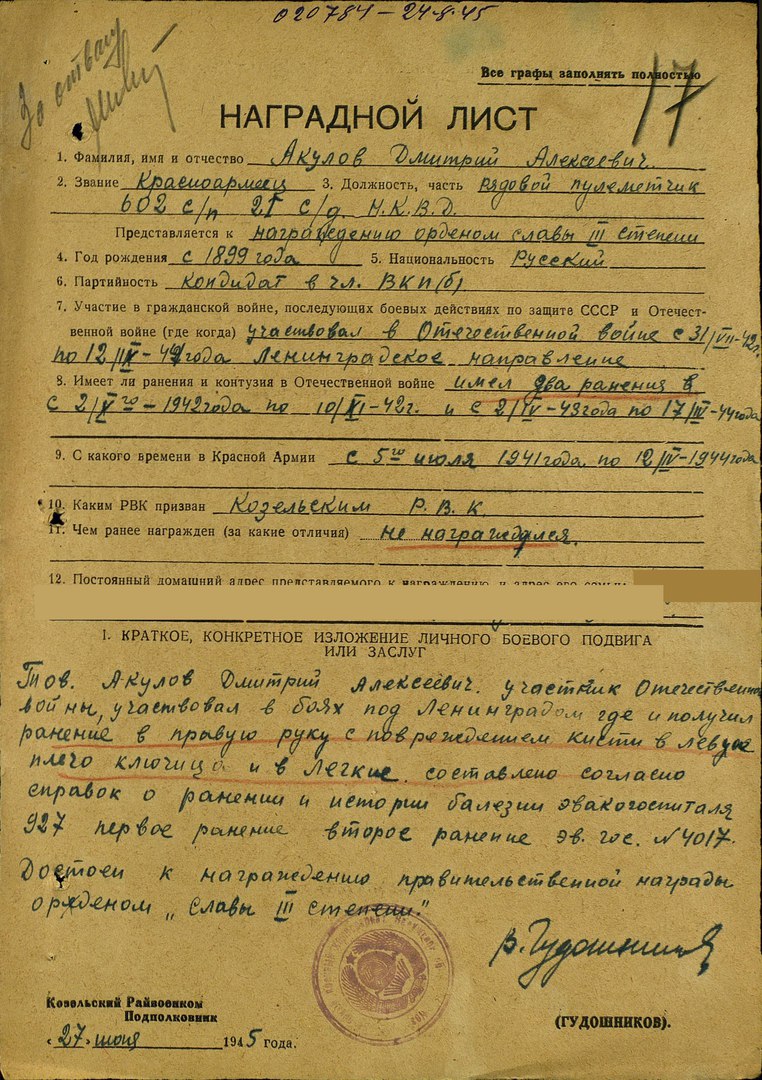 020784 – 24.8.45
За отвагу
Все графы заполнять полностью
17
НАГРАДНОЙ ЛИСТ
1. Фамилия, имя и отчество Акулов Дмитрий Алексеевич.
2. Звание Красноармеец 3. Должность, часть рядовой пулеметчик
602 с/п 21 с/д. Н.К.В.Д.
Представляется к награждению орденом славы III степени
4. Год рождения с 1899 года 5. Национальность Русский
6. Партийность кондидат в чл. ВКП(б)
7. Участие в гражданской войне, последующих боевых действиях по защите СССР и Отечест-
венной войне (где когда) участвовал в Отечественной войне с 31/VII-42г.
по 12/ года Ленинградское направление
8. Имеет ли ранения и контузия в Отечественной войне имел два ранения в
с 2/X го – 1942 года по 10/XI-42г. и с 2/IV-43 года по 17/ -44 года
9. С какого времени в Красной Армии с 5го июля 1941 года. по 12/IV-1944 года
10. Каким РВК призван Козельским Р.В.К.
11. Чем ранее награжден (за какие отличия) не награждался.
12. Постоянный домашний адрес представляемого к награждению и адрес его семьи
I. КРАТКОЕ, КОНКРЕТНОЕ ИЗЛОЖЕНИЕ ЛИЧНОГО БОЕВОГО ПОДВИГА
ИЛИ ЗАСЛУГ
Тов. Акулов Дмитрий Алексеевич. участник Отечественной
войны, участвовал в боях под Ленинградом где и получил
ранение в правую руку с повреждением кисти в левое
плечо ключица и в легкие. составлено согласно
справок о ранении и истории балезни эвакогоспиталя
927 первое ранение второе ранение эв. гос. N 4017.
Достоен к награждению правительственной награды
орденом „Славы III степени."
В. Гудошников
Козельский Райвоенком
Подполковник
(ГУДОШНИКОВ).
« 27 » июня 1945 года.